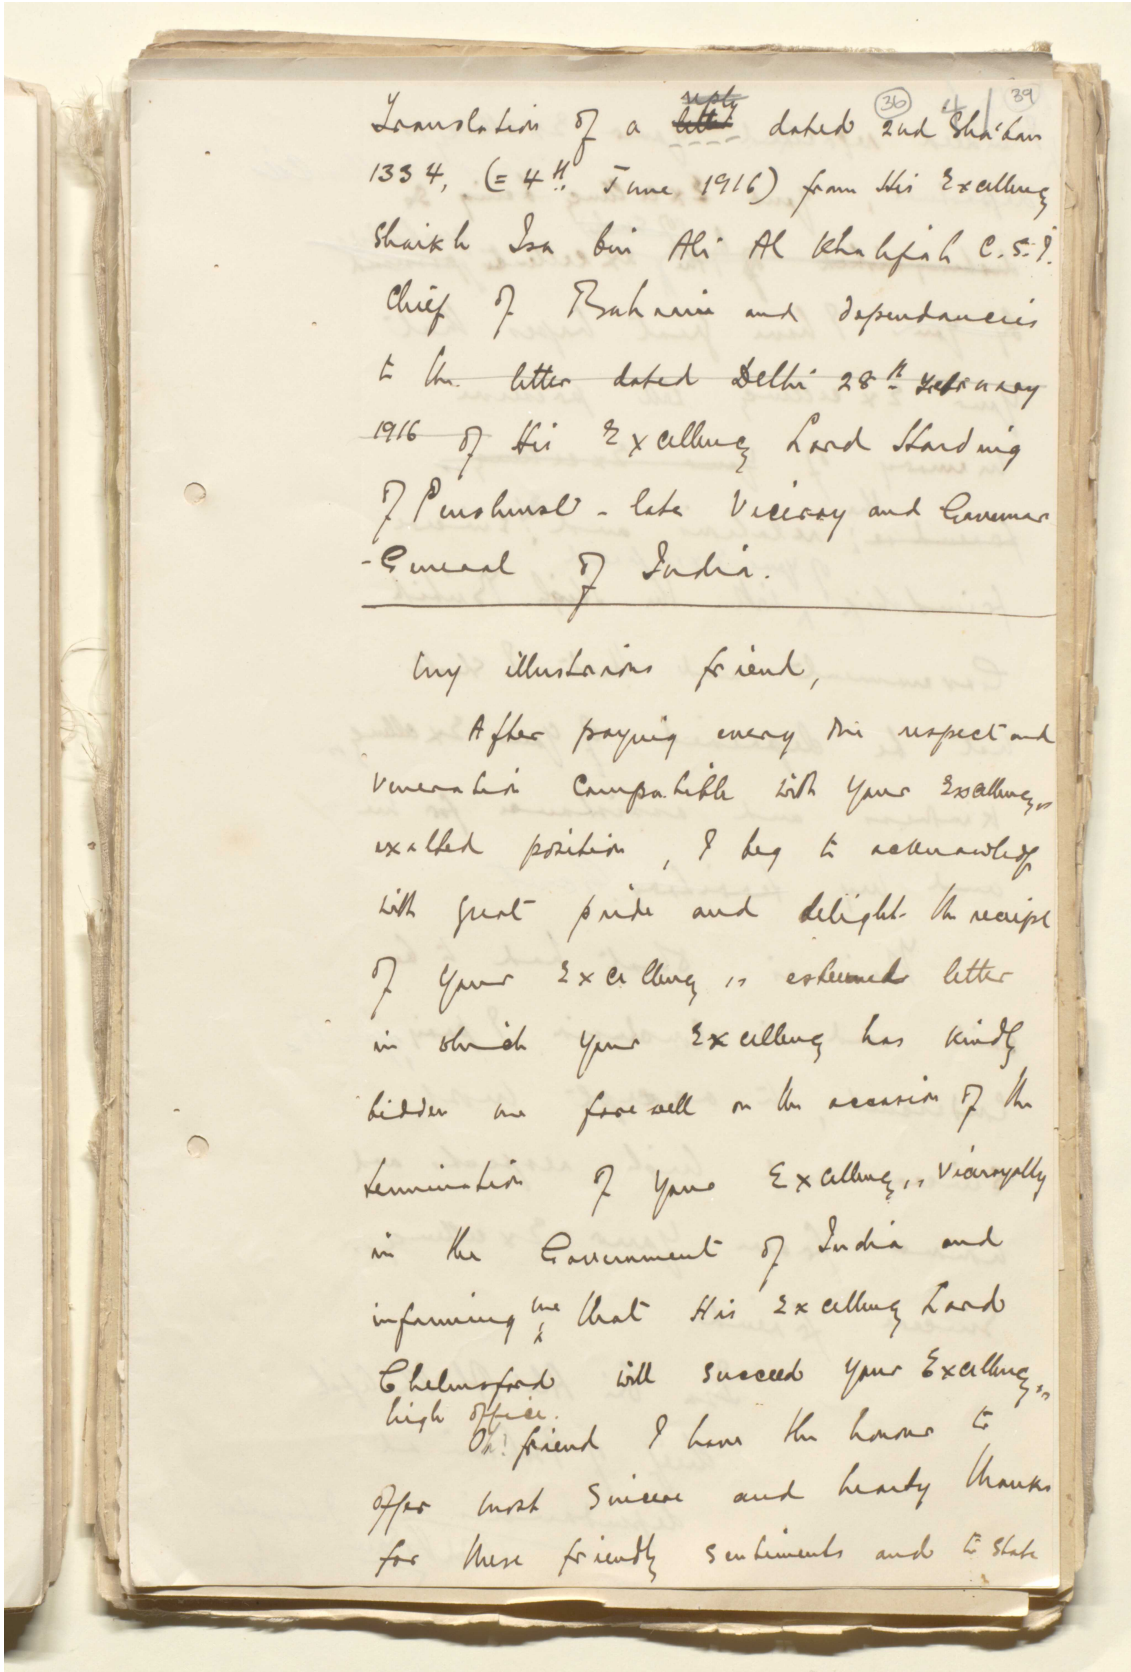 36 4 39
reply
Translation of a letter dated 2nd Sha'ban
1334, (= 4th June 1916) from His Excellency
Shaikh Isa bin Ali Al Khalifah C.S.I.
Chief of Bahrain and dependancies
to the letter dated Delhi 28th February
1916 of His Excellency Lord Harding
of Penshurst - late Viceroy and Governor
-General of India.
My illustrious friend,
After paying every due respect and
veneration compatible with your Excellency,,
exalted position, I beg to acknowledge
with great pride and delight the receipt
of your Excellency,, esteemed letter
in which your Excellency has kindly
bidden me farewell on the occasion of the
termination of your Excellency,, Viceroyalty
in the Government of India and
informing me that His Excellency Lord
Chelmsford will succeed your Excellency,,
high office.
Oh! friend I have the honour to
offer most sincere and hearty thanks
for these friendly sentiments and to state